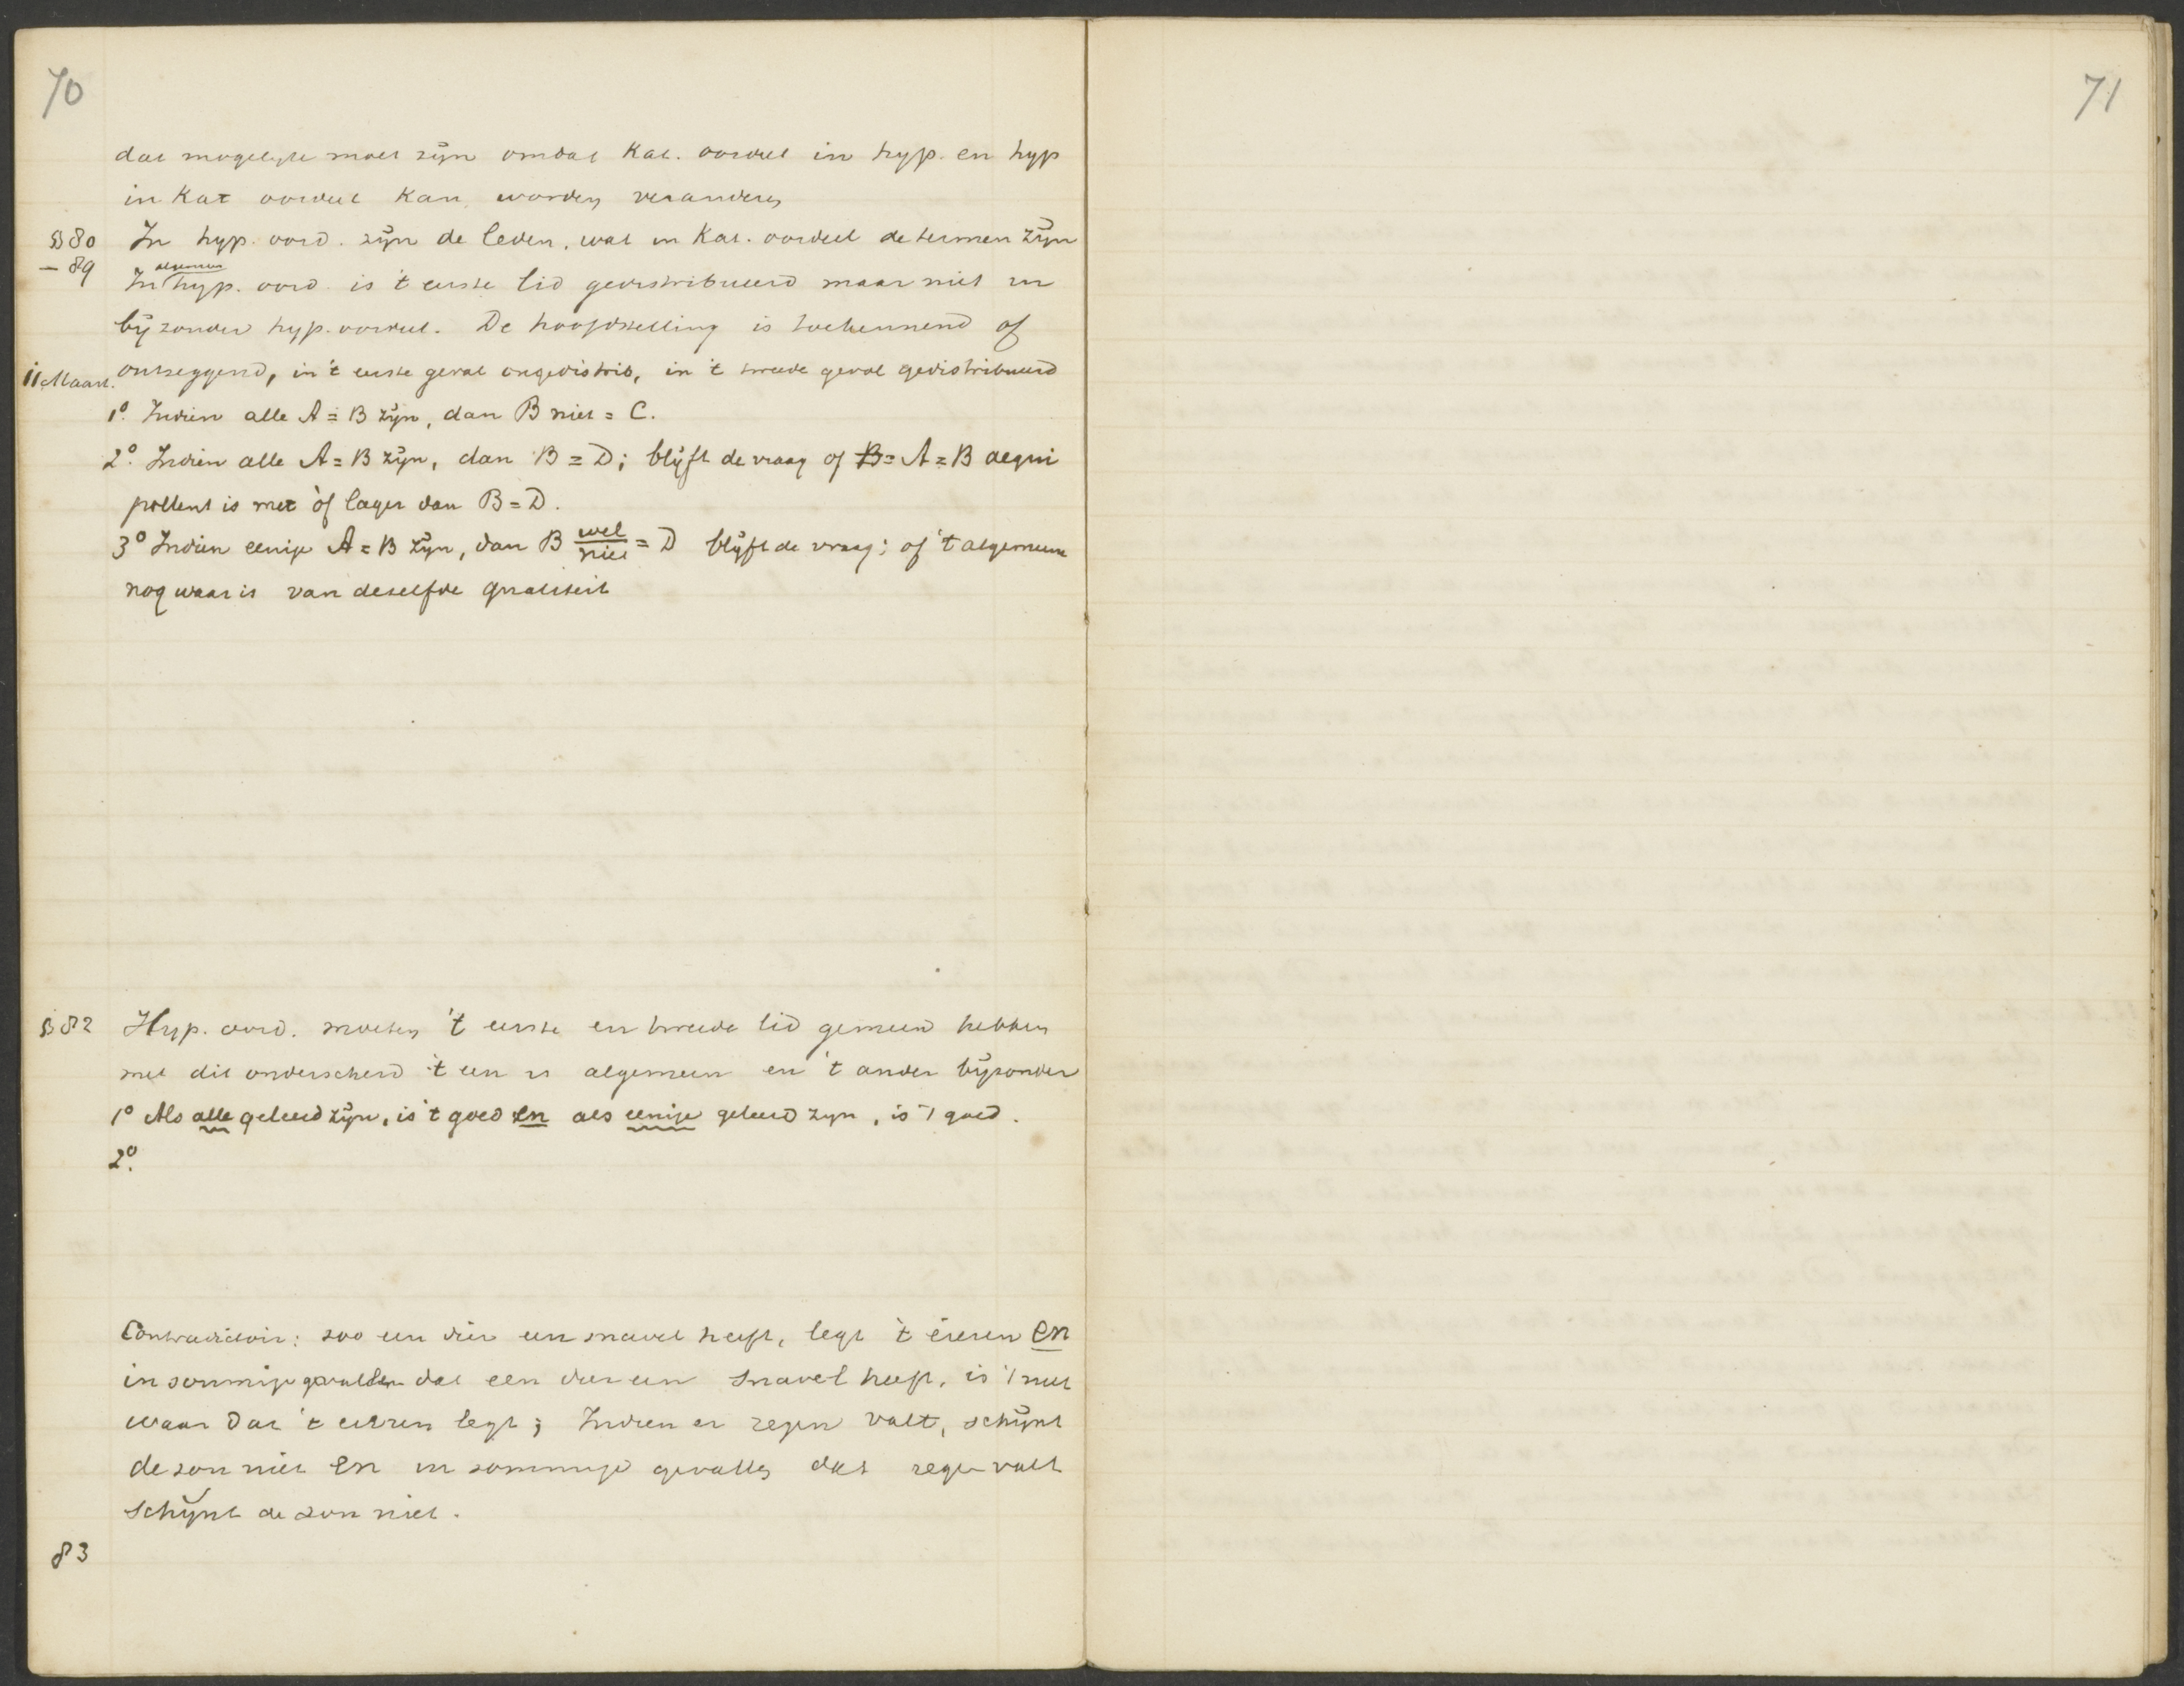 70
dat mogelijk moet zijn omdat Kat. oordeel in hyp. en hyp
in Kat oordeel kan worden veranderen
§ 80 In hyp. oord. zijn de leden, wat in Kat. oordeel de termen zijn
- 89 In algemeen hyp. oord. is 't eerste lid gedistribueerd maar niet in
bijzonder hyp. oordeel. De hoofdstelling is toekennend of
11 Maart. ontzeggend, in 't eerste geval ongedistrib, in 't tweede geval gedistribueerd
1o. Indien alle A = B zijn, dan B niet = C.
2o. Indien alle A = B zijn, dan B = D; blijft de vraag of B = A = B aequi
pollent is met òf lager dan B = D.
3o Indien eenige A = B zijn, dan B wel/niet = D blijft de vraag; of 't algemeene
nog waar is van dezelfde qualiteit
§ 82 Hyp. oord. moeten 't eerste en tweede lid gemeen hebben
met dit onderscheid 't een is algemeen en 't ander bijzonder
1o Als alle geleerd zijn, is 't goed en als eenige geleerd zijn, is 't goed.
2o.
Contradictoir: zoo een dier een snavel heeft, legt 't eieren en
in sommige gevallen dat een dier een snavel heeft, is 't niet
waar dat 't eieren legt; Indien er regen valt, schijnt
de zon niet en in sommige gevallen dat regen valt
schijnt de zon niet.
83
71